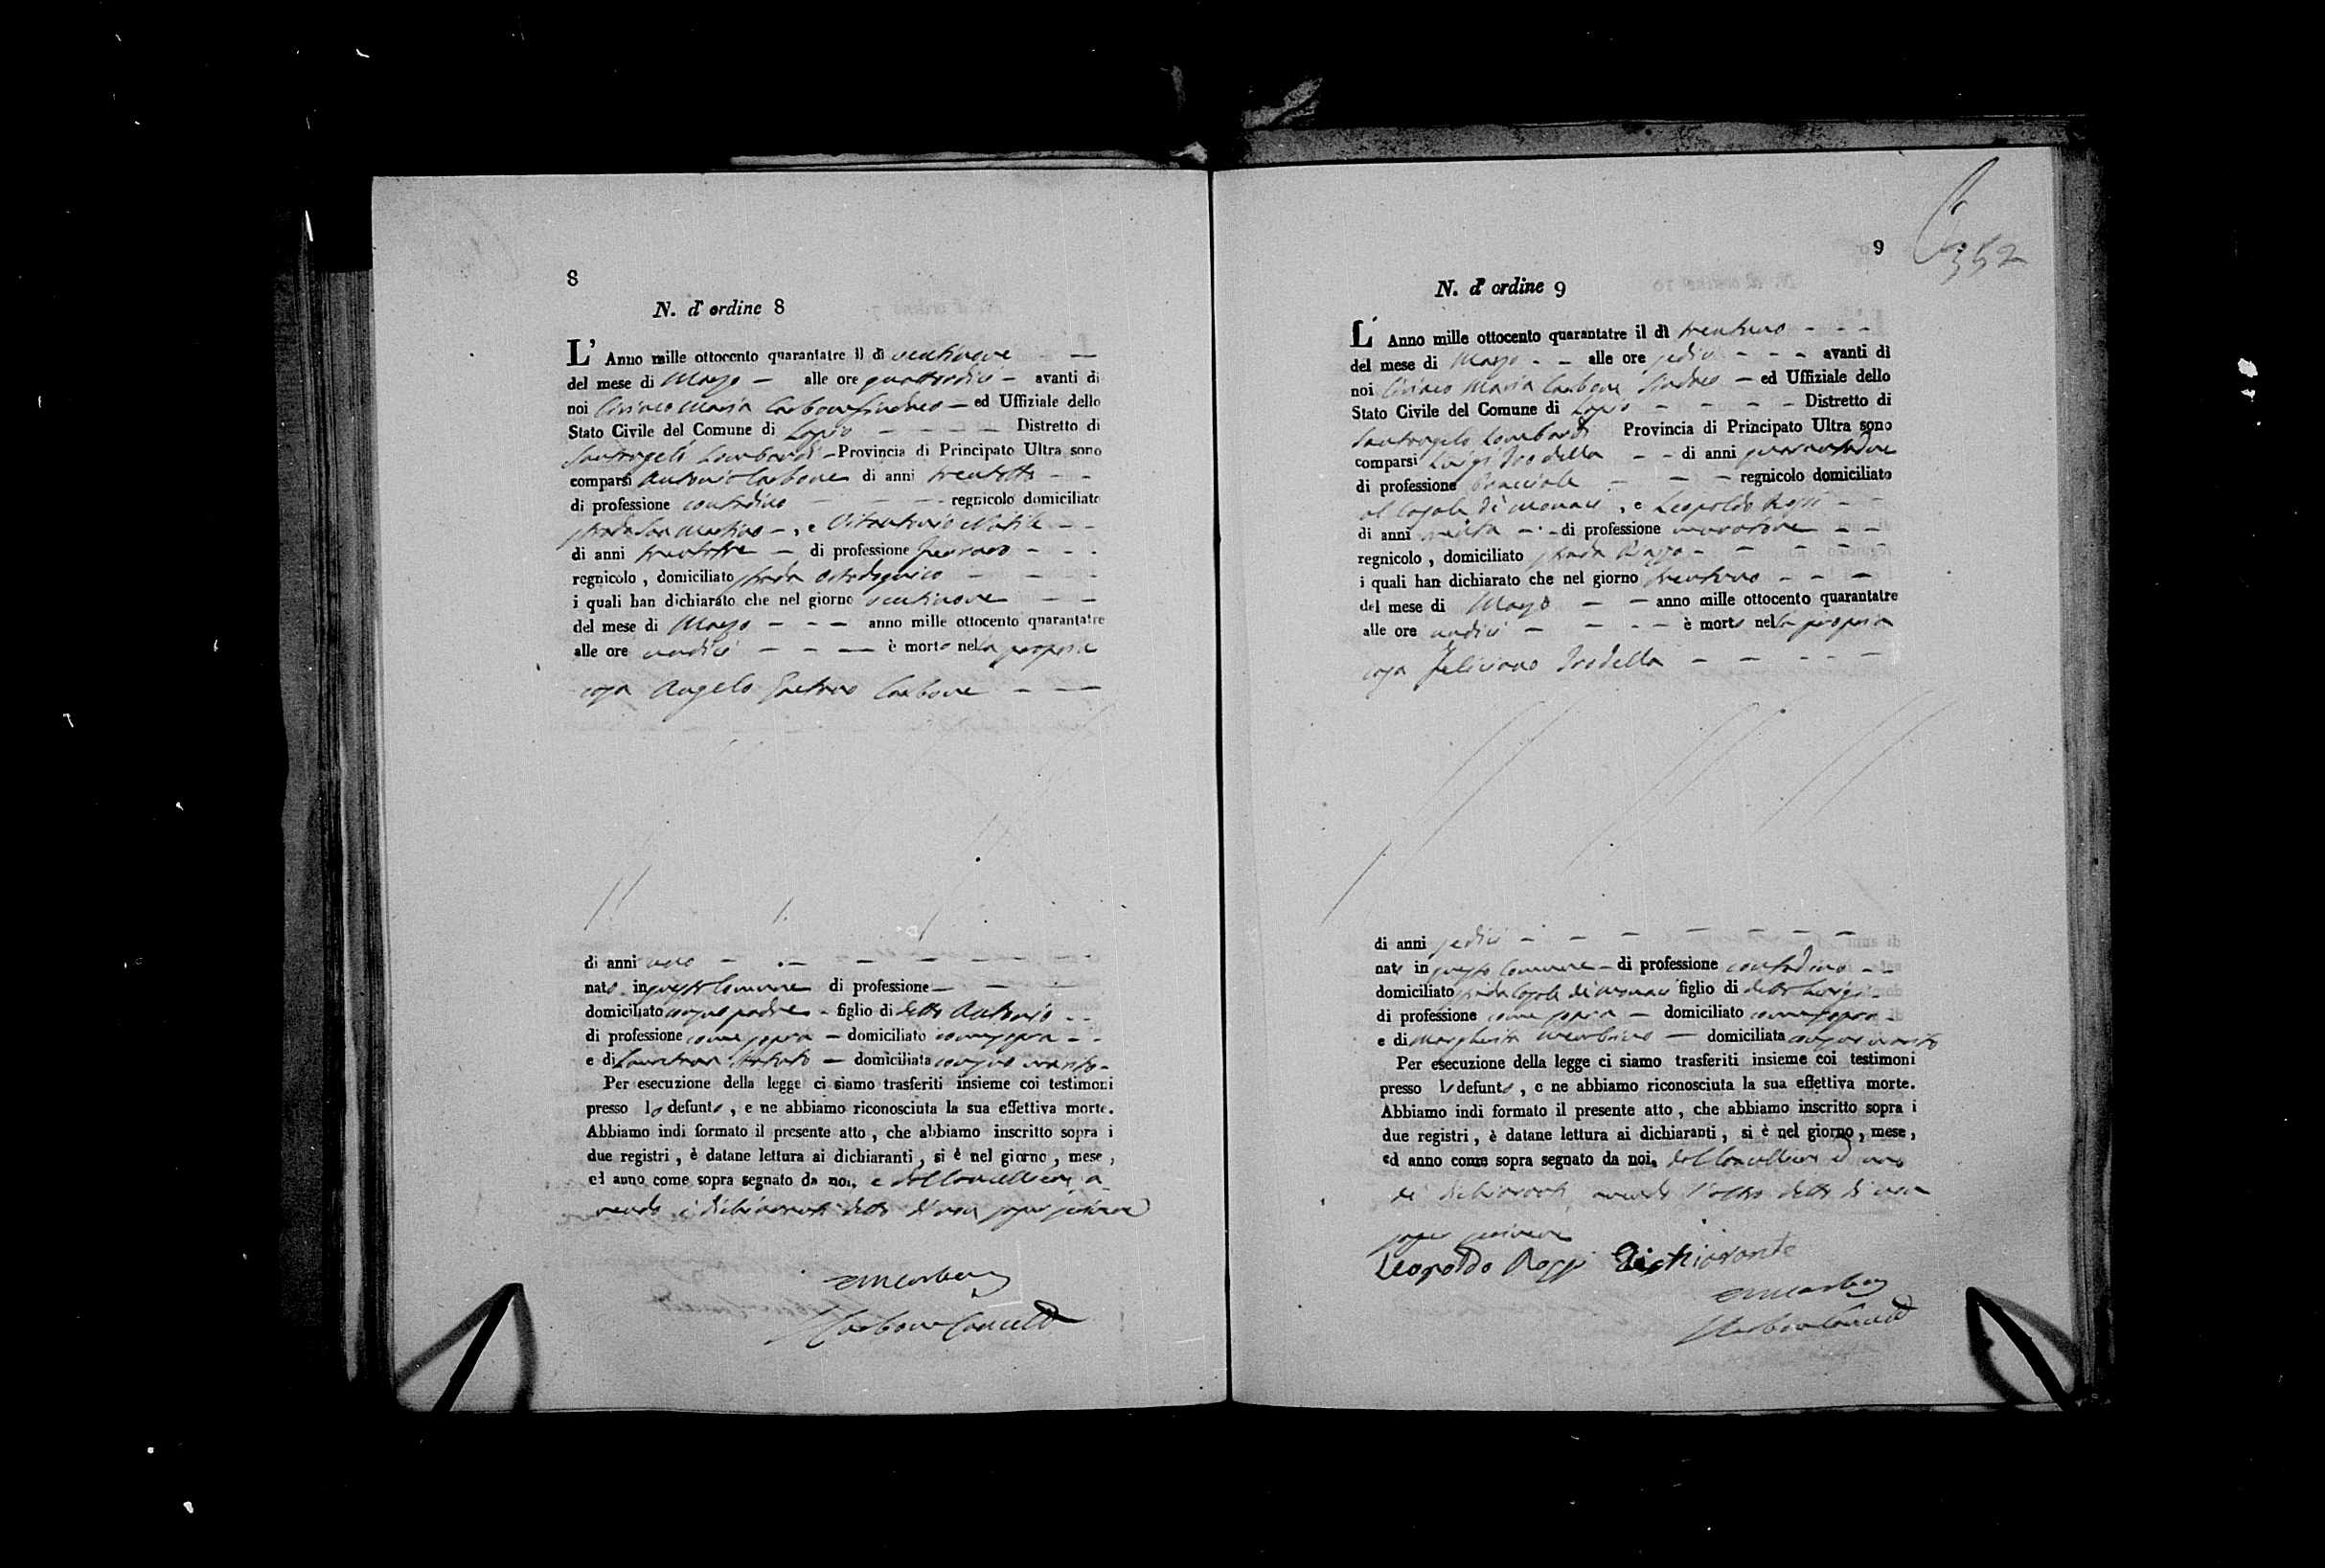 8
N. d'ordine 8
L' Anno mille ottocento quarantatre il di ventinove
del mese di Marzo alle ore quattordici avanti di
noi Ciriaco Maria Carbone Sindaco ed Uffiziale dello
Stato Civile del Comune di Lapio Distretto di
Santangelo Lombardi Provincia di Principato Ultra sono
comparsi Antonio Carbone di anni trentotto
di professione contadino regnicolo domiciliato
strada San Martino, e
di anni trentatre di professione
regnicolo, domiciliato strada
i quali han dichiarato che nel giorno ventinove
del mese di Marzo anno mille ottocento quarantatre
alle ore undici è morto nella propria
casa Angelo Gaetano Carbone
di anni uno
nato in questo Comune di professione
domiciliato con suo padre figlio di detto Antonio
di professione come sopra domiciliato come sopra
e di domiciliata con suo marito
Per esecuzione della legge ci siamo trasferiti insieme coi testimoni
presso lo defunto, e ne abbiamo riconosciuta la sua effettiva morte.
Abbiamo indi formato il presente atto, che abbiamo inscritto sopra i
due registri, è datane lettura ai dichiaranti, si è nel giorno, mese,
ed anno come sopra segnato da noi, e dal Cancelliere, a
vendo i dichiaranti detto di non saper scrivere
Carbone Cancell
9
352
N. d'ordine 9
L' Anno mille ottocento quarantatre il dì trentuno
del mese di Marzo alle ore sedici avanti di
noi Ciriaco Maria Carbone Sindaco ed Uffiziale dello
Stato Civile del Comune di Lapio Distretto di
Santangelo Lombardi Provincia di Principato Ultra sono
comparsi Luigi Trodella di anni quarantadue
di professione bracciale regnicolo domiciliato
al Casale di Monaci, e Leopoldo Rossi
di anni trenta di professione muratore
regnicolo, domiciliato strada Piazza
i quali han dichiarato che nel giorno trentuno
del mese di Marzo anno mille ottocento quarantatre
alle ore undici è morto nella propria
casa Feliciano Trodella
di anni sedici
nato in questo Comune di professione contadino
domiciliato strada Casale di Monaci figlio di detto Luigi
di professione come sopra domiciliato come sopra
e di Margherita domiciliata con suo marito
Per esecuzione della legge ci siamo trasferiti insieme coi testimoni
presso lo defunto, e ne abbiamo riconosciuta la sua effettiva morte.
Abbiamo indi formato il presente atto, che abbiamo inscritto sopra i
due registri, è datane lettura ai dichiaranti, si è nel giorno, mese,
ed anno come sopra segnato da noi, dal Cancelliere ed uno
de' dichiaranti, avendo l'altro detto di non
saper scrivere
Leopoldo Rossi Dichiarante
Carbone Cancell